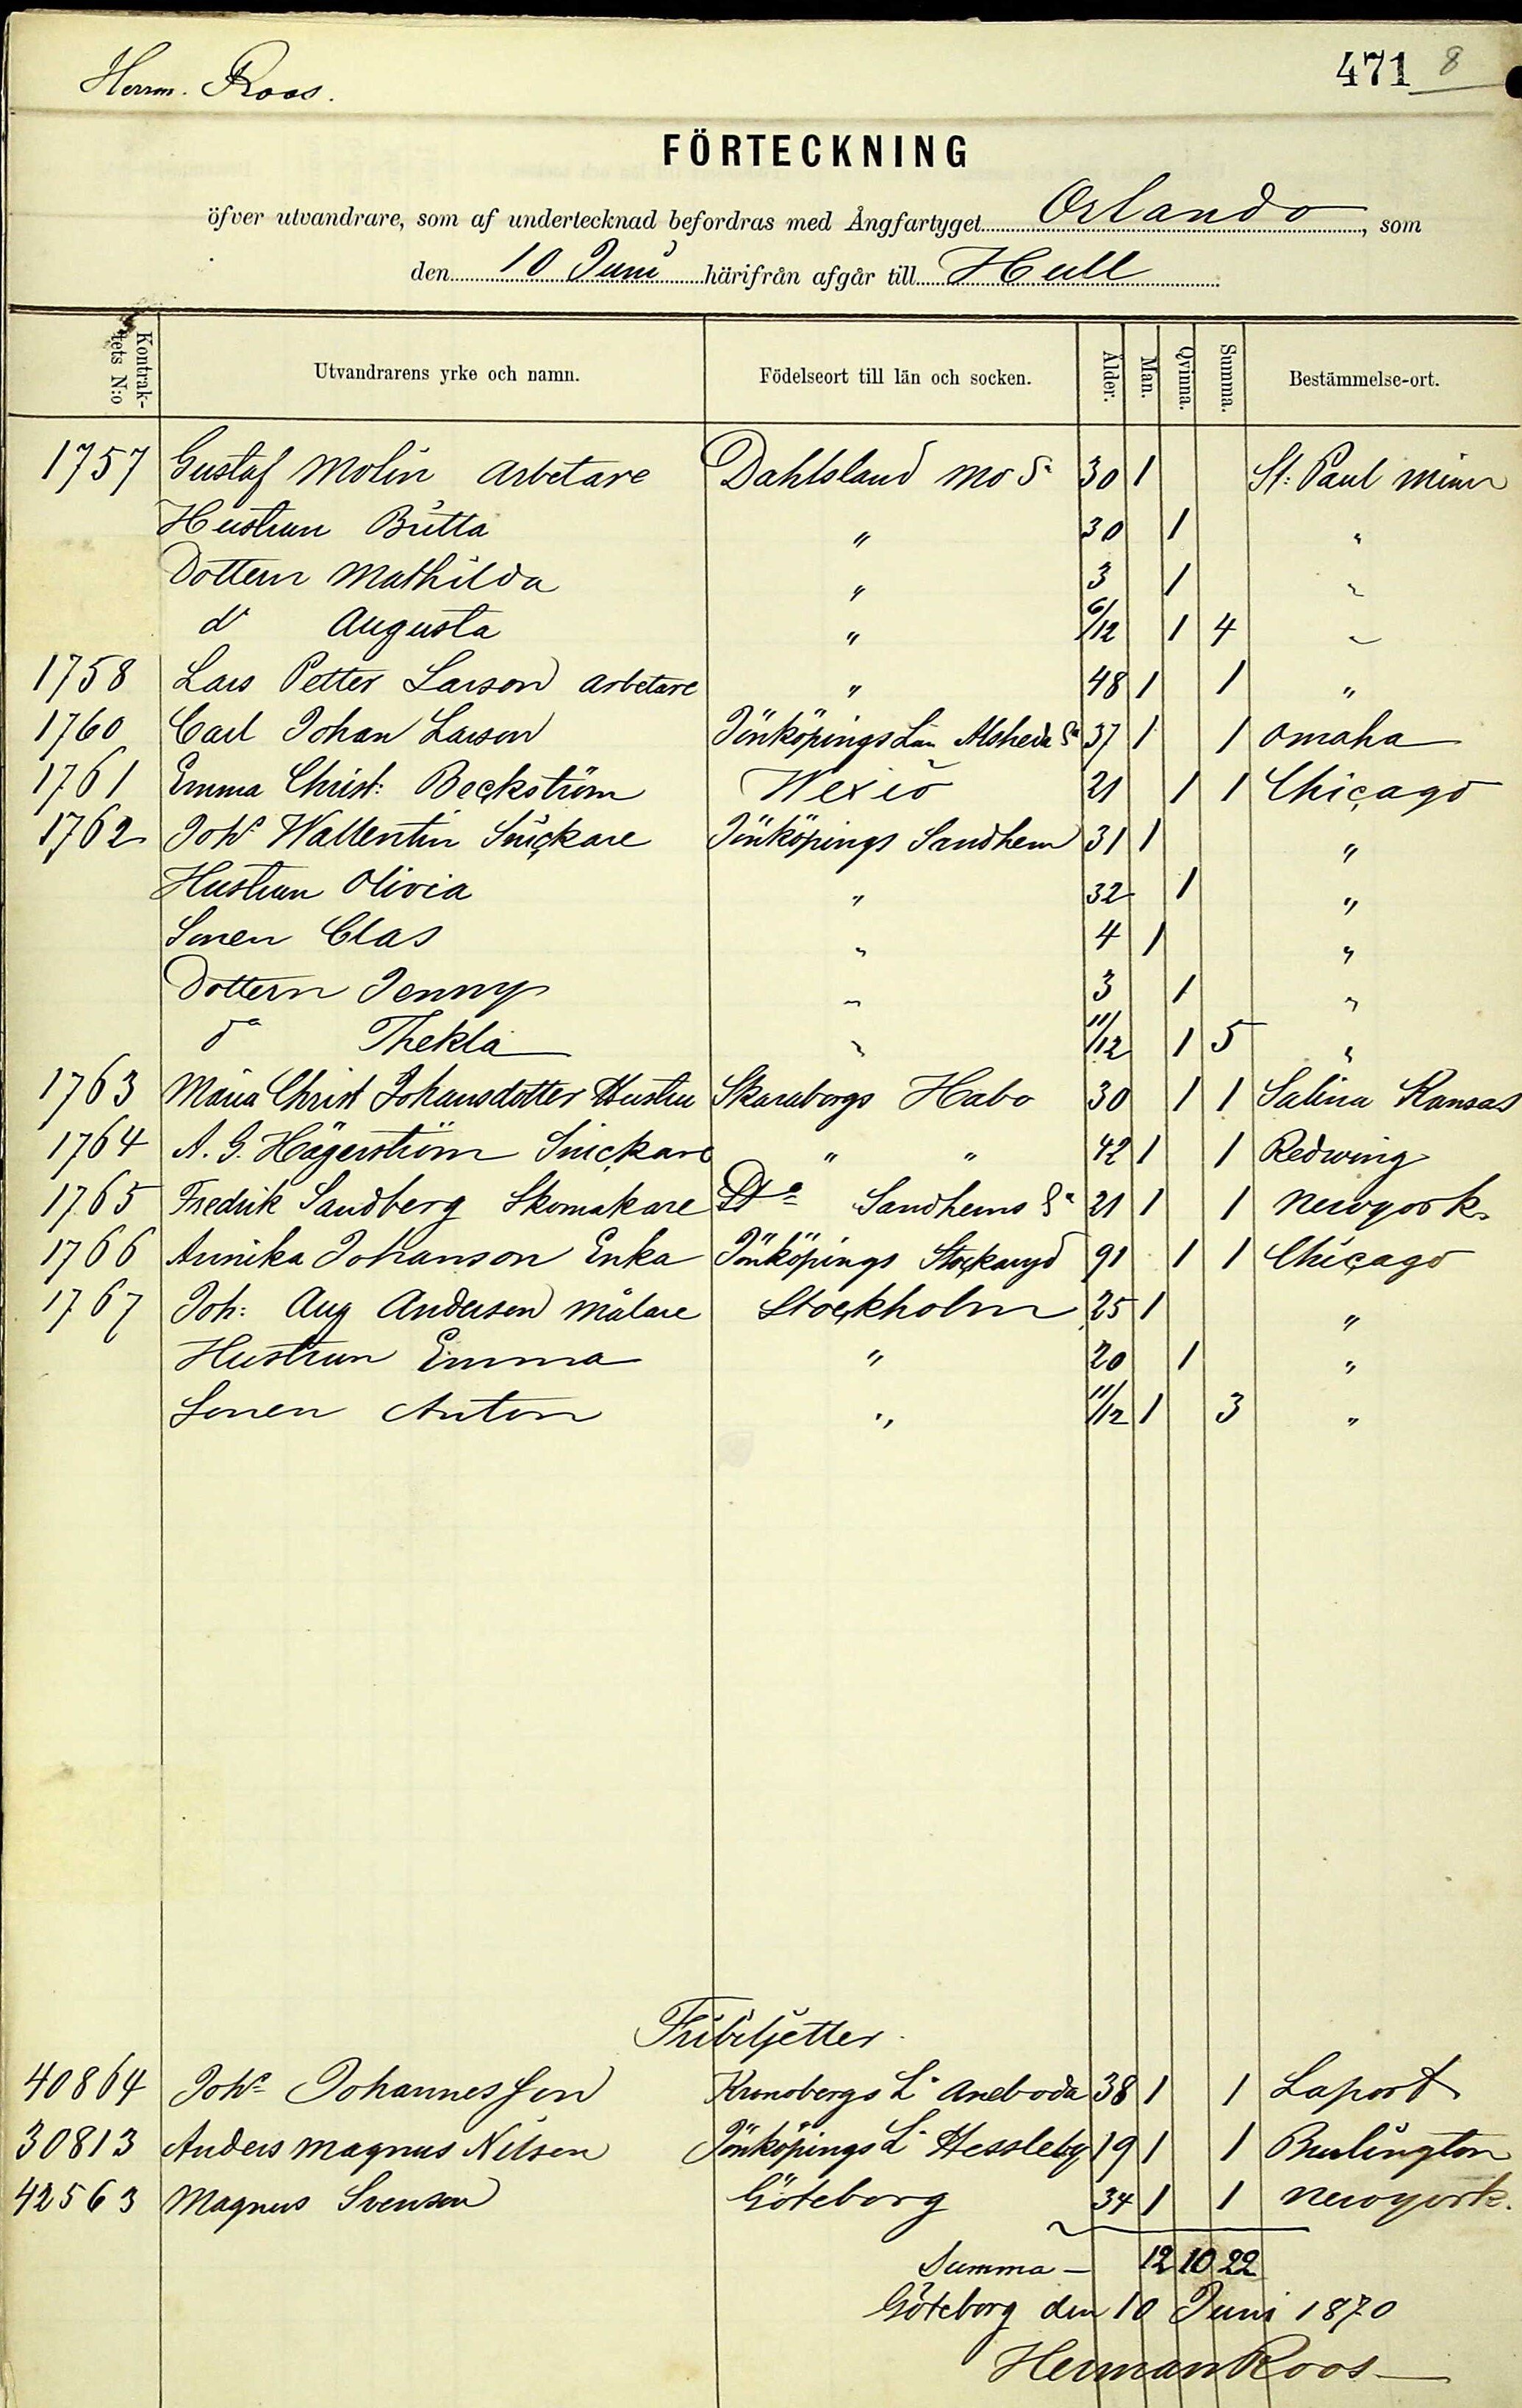 Herrm. Roos.
471 8
FÖRTECKNING
öfver utvandrare, som af undertecknad befordras med Ångfartyget Orlando, som
den 10 Juni härifrån afgår till Hull
Kontrak-tets N:o Utvandrarens yrke och namn. Födelseort till län och socken. Ålder. Man. Qvinna. Summa. Bestämmelse-ort.
1757 Gustaf Molin arbetare Dahlsland Mo Sn 30 1 St: Paul Minn
Hustrun Britta " 30 1 "
Dottern Mathilda " 3 1 "
do Augusta " 6/12 1 4 "
1758 Lars Petter Larson arbetare " 48 1 1 "
1760 Carl Johan Larson Jönköpings Län Alsheda Sn 37 1 1 Omaha
1761 Emma Christ: Beckström Wexiö 21 1 1 Chicago
1762 Johs Wallentin Snickare Jönköpings Sandhem 31 1 "
Hustrun Olivia " 32 1 "
Sonen Clas " 4 1 "
Dottern Jenny " 3 1 "
do Thekla " 11/12 1 5 "
1763 Maria Christ Johansdotter Hustru Skaraborgs Habo 30 1 1 Salina Kansas
1764 A. G. Hägerström Snickare " " 42 1 1 Redwing
1765 Fredrik Sandberg Skomakare Dto Sandhems Sn 21 1 1 Newyork
1766 Annika Johanson Enka Jönköpings Stockaryd 91 1 1 Chicago
1767 Joh: Aug Anderson Målare Stockholm 25 1 "
Hustrun Emma " 20 1 "
Sonen Anton " 11/12 1 3 "
Fribiljetter
40864 Johs Johannesson Kronobergs L. Aneboda 38 1 1 Laport
30813 Anders Magnus Nilson Jönköpings L. Hessleby 19 1 1 Burlington
42563 Magnus Svenson Göteborg 34 1 1 Newyork.
Summa — 12 10 22
Göteborg den 10 Juni 1870
Herman Roos